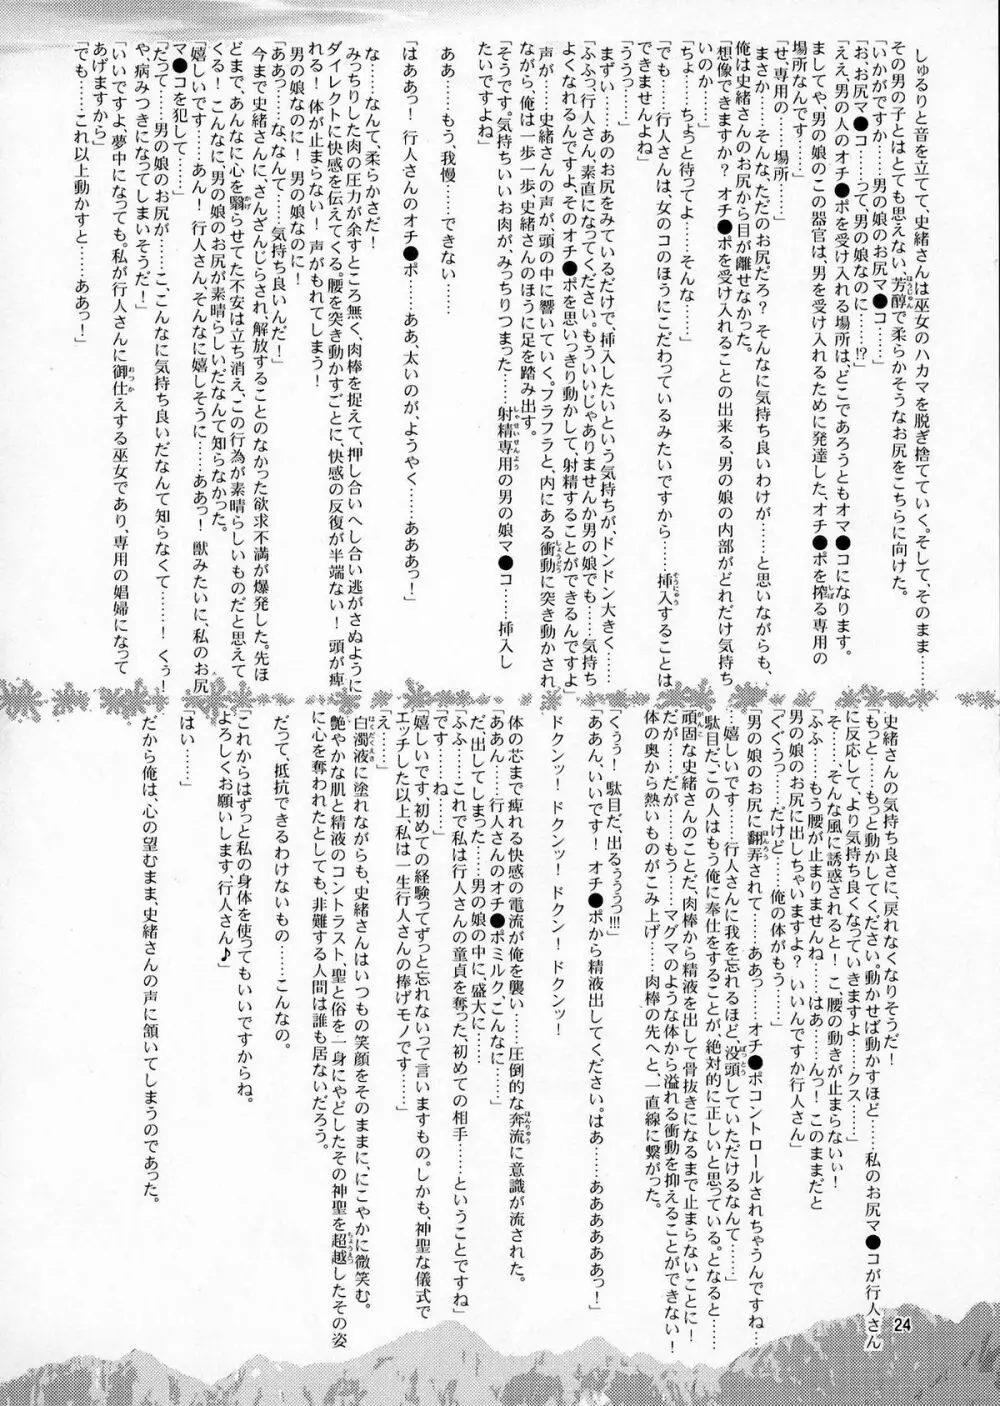 しゅるりと音を立てて、史緒さんは巫女のハカマを脱ぎ捨てていく。そして、そのまま……
その男の子とはとても思えない、芳醇で柔らかそうなお尻をこちらに向けた。
「いかがですか……男の娘のお尻マ●コ……」
「お、お尻マ●コ……って、男の娘なのに……!?」
「ええ、男の人のオチ●ポを受け入れる場所は、どこであろうともオマ●コになります。
ましてや、男の娘のこの器官は、男を受け入れるために発達した、オチ●ポを搾る専用の
場所なんです……」
「せ、専用の……場所……」
まさか……そんな、ただのお尻だろ？ そんなに気持ち良いわけが……と思いながらも、
俺は史緒さんのお尻から目が離せなかった。
「想像できますか？ オチ●ポを受け入れることの出来る、男の娘の内部がどれだけ気持ち
いいのか……」
「ちょ……ちょっと待ってよ……そんな……」
「でも……行人さんは、女のコのほうにこだわっているみたいですから……挿入することは
できませんよね」
「ううっ……」
まずい……あのお尻をみている。だけで、挿入したいという気持ちが、ドンドン大きく……
「ふふっ、行人さん、素直になってください。もういいじゃありませんか男の娘でも……気持ち
よくなれるんですよ、そのオチ●ポを思いっきり動かして、射精することができるんですよ」
声が……史緒さんの声が、頭の中に響いていく。フラフラと、内にある衝動に突き動かされ
ながら、俺は一歩一歩、史緒さんのほうに足を踏み出す。
「そうです。気持ちいいお肉が、みっちりつまった……射精専用の男の娘マ●コ……挿入し
たいですよね」
ああ……もう、我慢……できない……
「はああっ！ 行人さんのオチ●ポ……ああ、太いのが、ようやく……あああっ！」
な……なんて、柔らかさだ！
みっちりした肉の圧力が余すところ無く、肉棒を捉えて、押し合いへし合い逃がさぬように
ダイレクトに快感を伝えてくる。腰を突き動かすごとに、快感の反復が半端ない！ 頭が痺
れる！ 体が止まらない！ 声がもれてしまう！
男の娘なのに！ 男の娘なのに！
「ああっ……な、なんて……気持ち良いんだ！」
今まで史緒さんに、さんざんじらされ、解放することのなかった欲求不満が爆発した。先ほ
どまで、あんなに心を翳らせてた不安は立ち消え、この行為が素晴らしいものだと思えて
くる！ こんなに、男の娘のお尻が素晴らしいだなんて知らなかった。
「嬉しいです……あん！ 行人さん、そんなに嬉しそうに……ああっ！ 獣みたいに、私のお尻
マ●コを犯して……」
「だって……男の娘のお尻が……こ、こんなに気持ち良いだなんて知らなくて……！ くぅ！
や、病みつきになってしまいそうだ！」
「いいですよ、夢中になっても。私が行人さんに御仕えする巫女であり、専用の娼婦になって
あげますから」
「でも……これ以上動かすと……ああっ！」
史緒さんの気持ち良さに、戻れなくなりそうだ！
「もっと……もっと動かしてください。動かせば動かすほど……私のお尻マ●コが行人さん
に反応して、より気持ち良くなっていきますよ……クス……」
そ……そんな風に誘惑されると！ こ、腰の動きが止まらないぃ！
「ふふ……もう腰が止まりませんね……はあ……んっ！ このままだと
男の娘のお尻に出しちゃいますよ？ いいんですか行人さん」
「ぐぐうっ……だけど……俺の体がもう……」
「男の娘のお尻に翻弄されて……ああっ……オチ●ポコントロールされちゃうんですね……
……嬉しいです……行人さんに我を忘れるほど、没頭していただけるなんて……」
駄目だ、この人はもう俺に奉仕をすることが、絶対的に正しいと思っている。となると……
頑固な史緒さんのことだ、肉棒から精液を出して骨抜きになるまで止まらないことに！
だが……だが……もう……マグマのような体から溢れる衝動を抑えることができない！
体の奥から熱いものがこみ上げ……肉棒の先へと、一直線に繋がった。
「くぅぅ！ 駄目だ、出るぅぅぅっ!!!」
「ああん、いいです！ オチ●ポから精液出してください。はぁ……あああああっ！」
ドクンッ！ ドクンッ！ ドクン！ ドクンッ！
体の芯まで痺れる快感の電流が俺を襲い……圧倒的な奔流に意識が流された。
「ああん……行人さんのオチ●ポミルク、ごんなに……」
だ、出してしまった……男の娘の中に、盛大に……
「ふふ……これで私は行人さんの童貞を奪った、初めての相手……ということですね」
「です……ね……」
「嬉しいです、初めての経験ってずっと忘れないって言いますもの。しかも、神聖な儀式で
エッチした以上、私は一生行人さんの捧げモノです……」
「え……」
白濁液に塗れながらも、史緒さんはいつもの笑顔をそのままに、にこやかに微笑む。
艶やかな肌と精液のコントラスト、聖と俗を一身にやどしたその神聖を超越したその姿
に心を奪われたとしても、非難する人間は誰も居ないだろう。
だって、抵抗できるわけないもの……こんなの。
「これからはずっと私の身体を使ってもいいですからね。
よろしくお願いします、行人さん♪」
「はい……」
だから俺は、心の望むまま、史緒さんの声に頷いてしまうのであった。
24